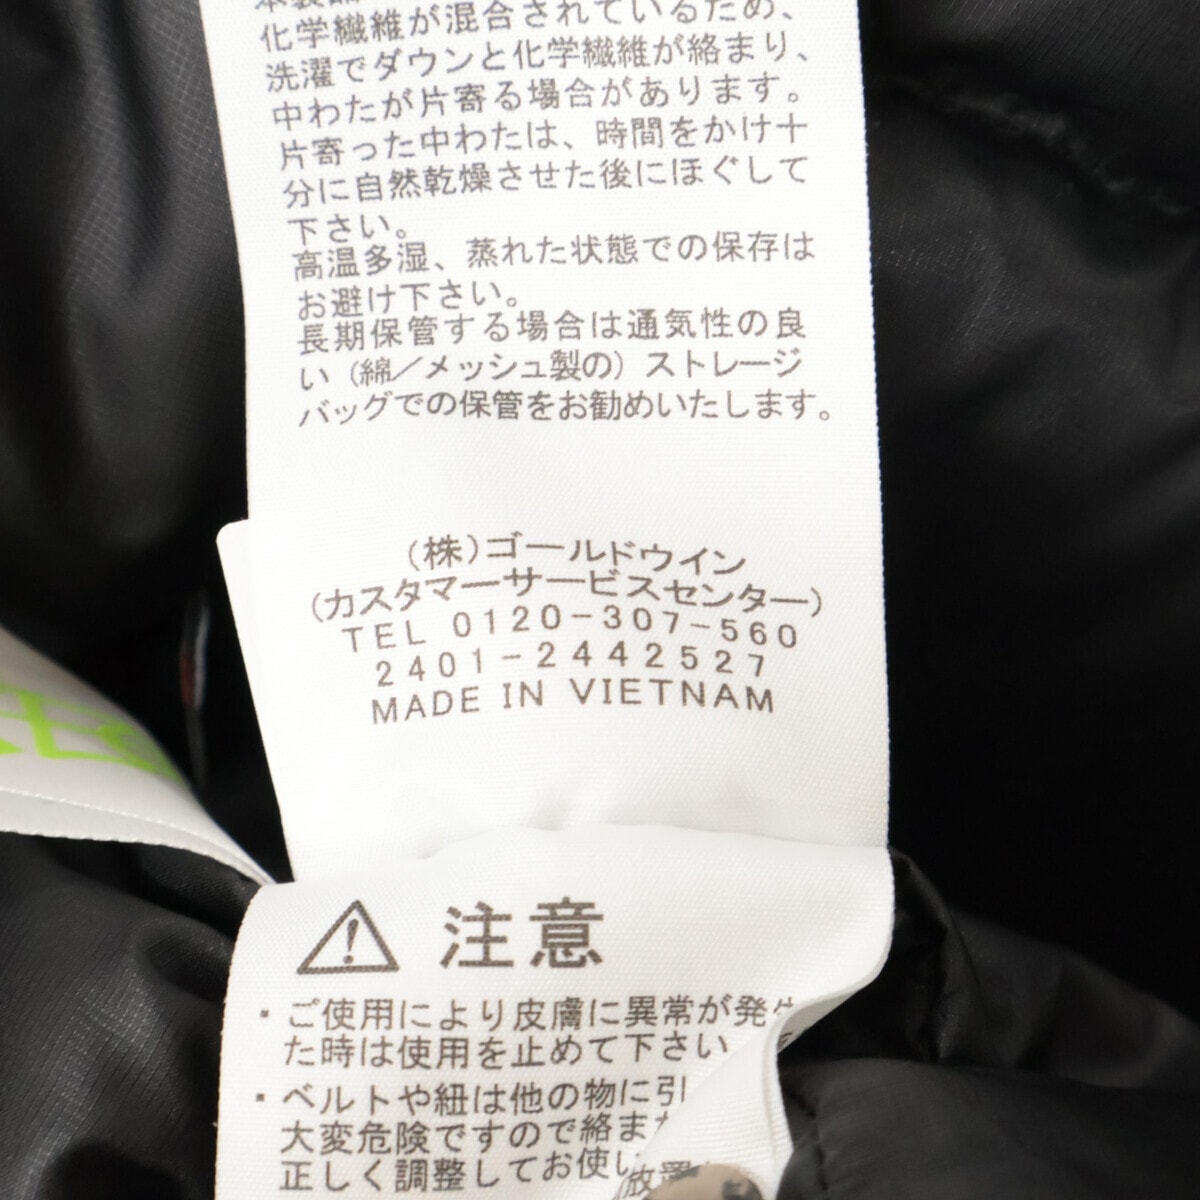 化学繊維が混合されているため、
洗濯でダウンと化学繊維が絡まり、
中わたが片寄る場合があります。
片寄った中わたは、時間をかけ十
分に自然乾燥させた後にほぐして
下さい。
高温多湿、蒸れた状態での保存は
お避け下さい。
長期保管する場合は通気性の良
い（綿／メッシュ製の）ストレージ
バッグでの保管をお勧めいたします。
（株）ゴールドウイン
（カスタマーサービスセンター）
TEL 0120-307-560
2401-2442527
MADE IN VIETNAM
注意
・ご使用により皮膚に異常が発生
た時は使用を止めて下さい
・ベルトや紐は他の物に引
大変危険ですので絡ま
正しく調整してお使い
放置